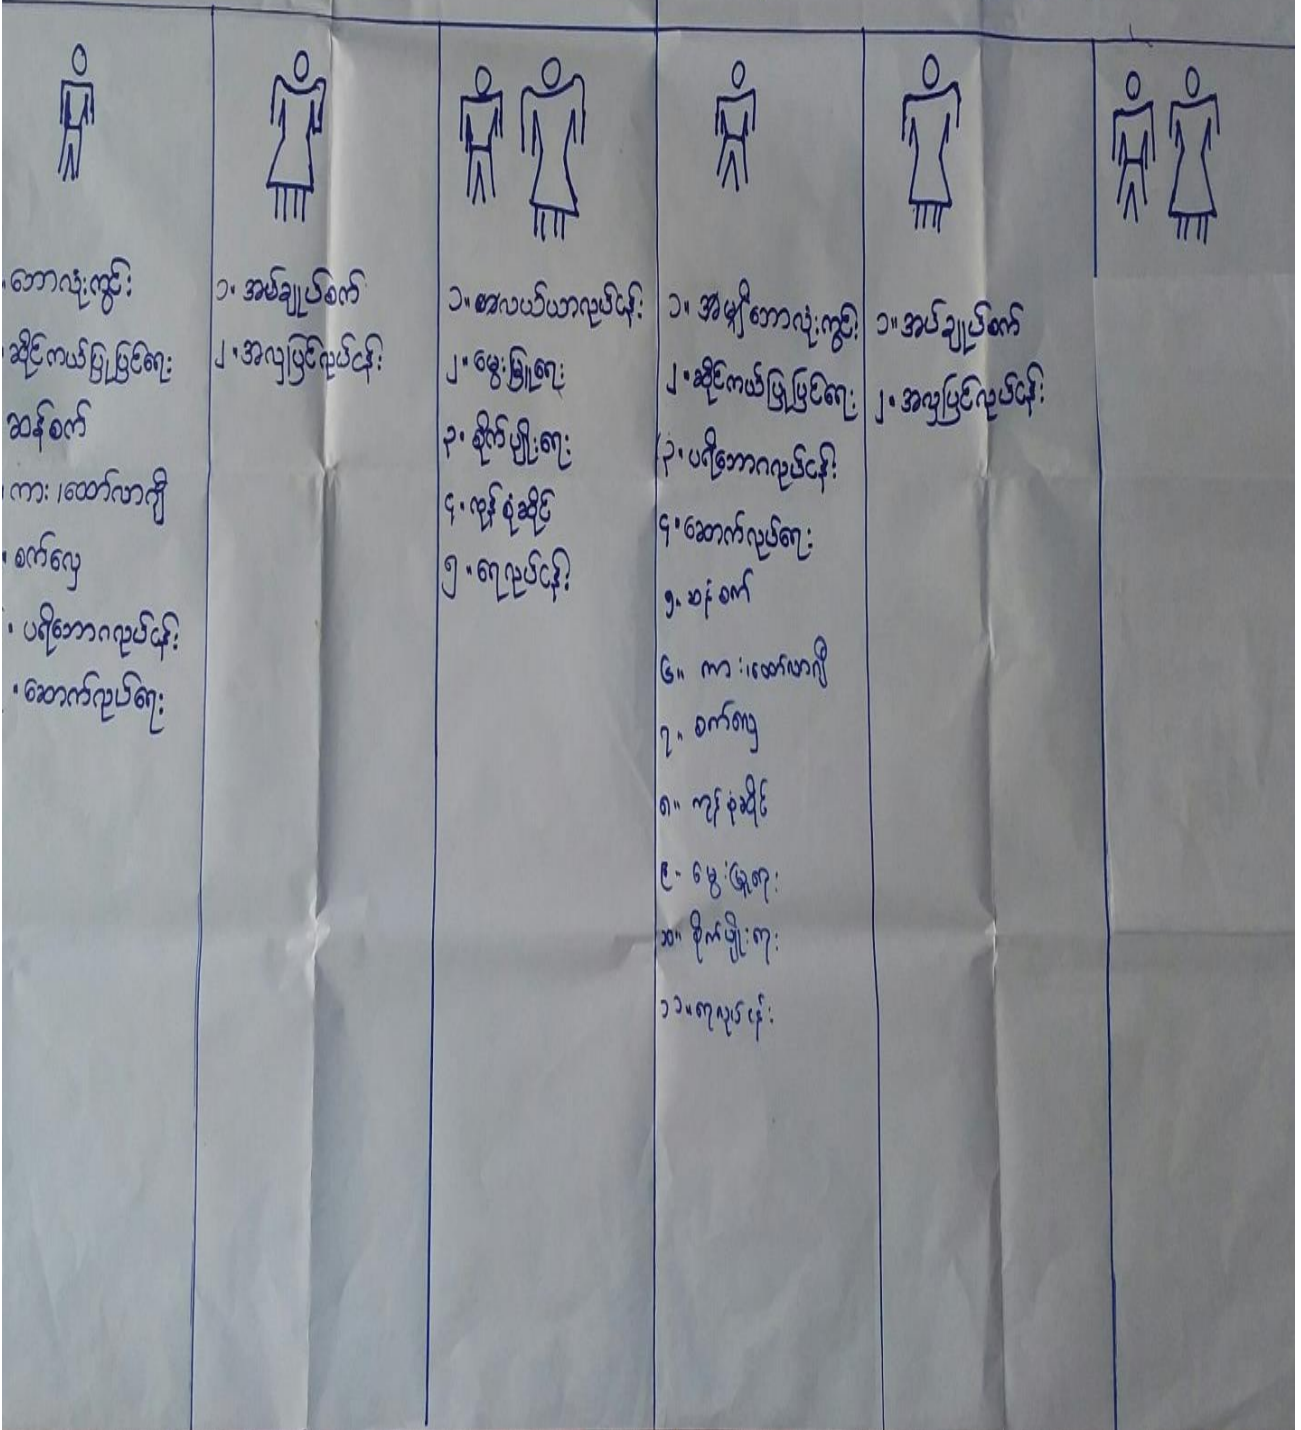 ဘောလုံးကွင်း
ဆိုင်ကယ်ပြုပြင်ရေး
ဆန်စက်
ကား၊ထော်လာဂျီ
စက်လှေ
ပရိဘောဂလုပ်ငန်း
ဆောက်လုပ်ရေး
၁။ အပ်ချုပ်စက်
၂။ အလှပြင်လုပ်ငန်း
၁။ စာလယ်ယာလုပ်ငန်း
၂။ မွေးမြူရေး
၃။ စိုက်ပျိုးရေး
၄။ ကုန်စုံဆိုင်
၅။ ရေလုပ်ငန်း
၁။ အများဘောလုံးကွင်း
၂။ ဆိုင်ကယ်ပြုပြင်ရေး
၃။ ပရိဘောဂလုပ်ငန်း
၄။ ဆောက်လုပ်ရေး
၅။ ဆန်စက်
၆။ ကား၊ထော်လာဂျီ
၇။ စက်လှေ
၈။ ကုန်စုံဆိုင်
၉။ မွေးမြူရေး
၁၀။ စိုက်ပျိုးရေး
၁၁။ ရေလုပ်ငန်း
၁။ အပ်ချုပ်စက်
၂။ အလှပြင်လုပ်ငန်း